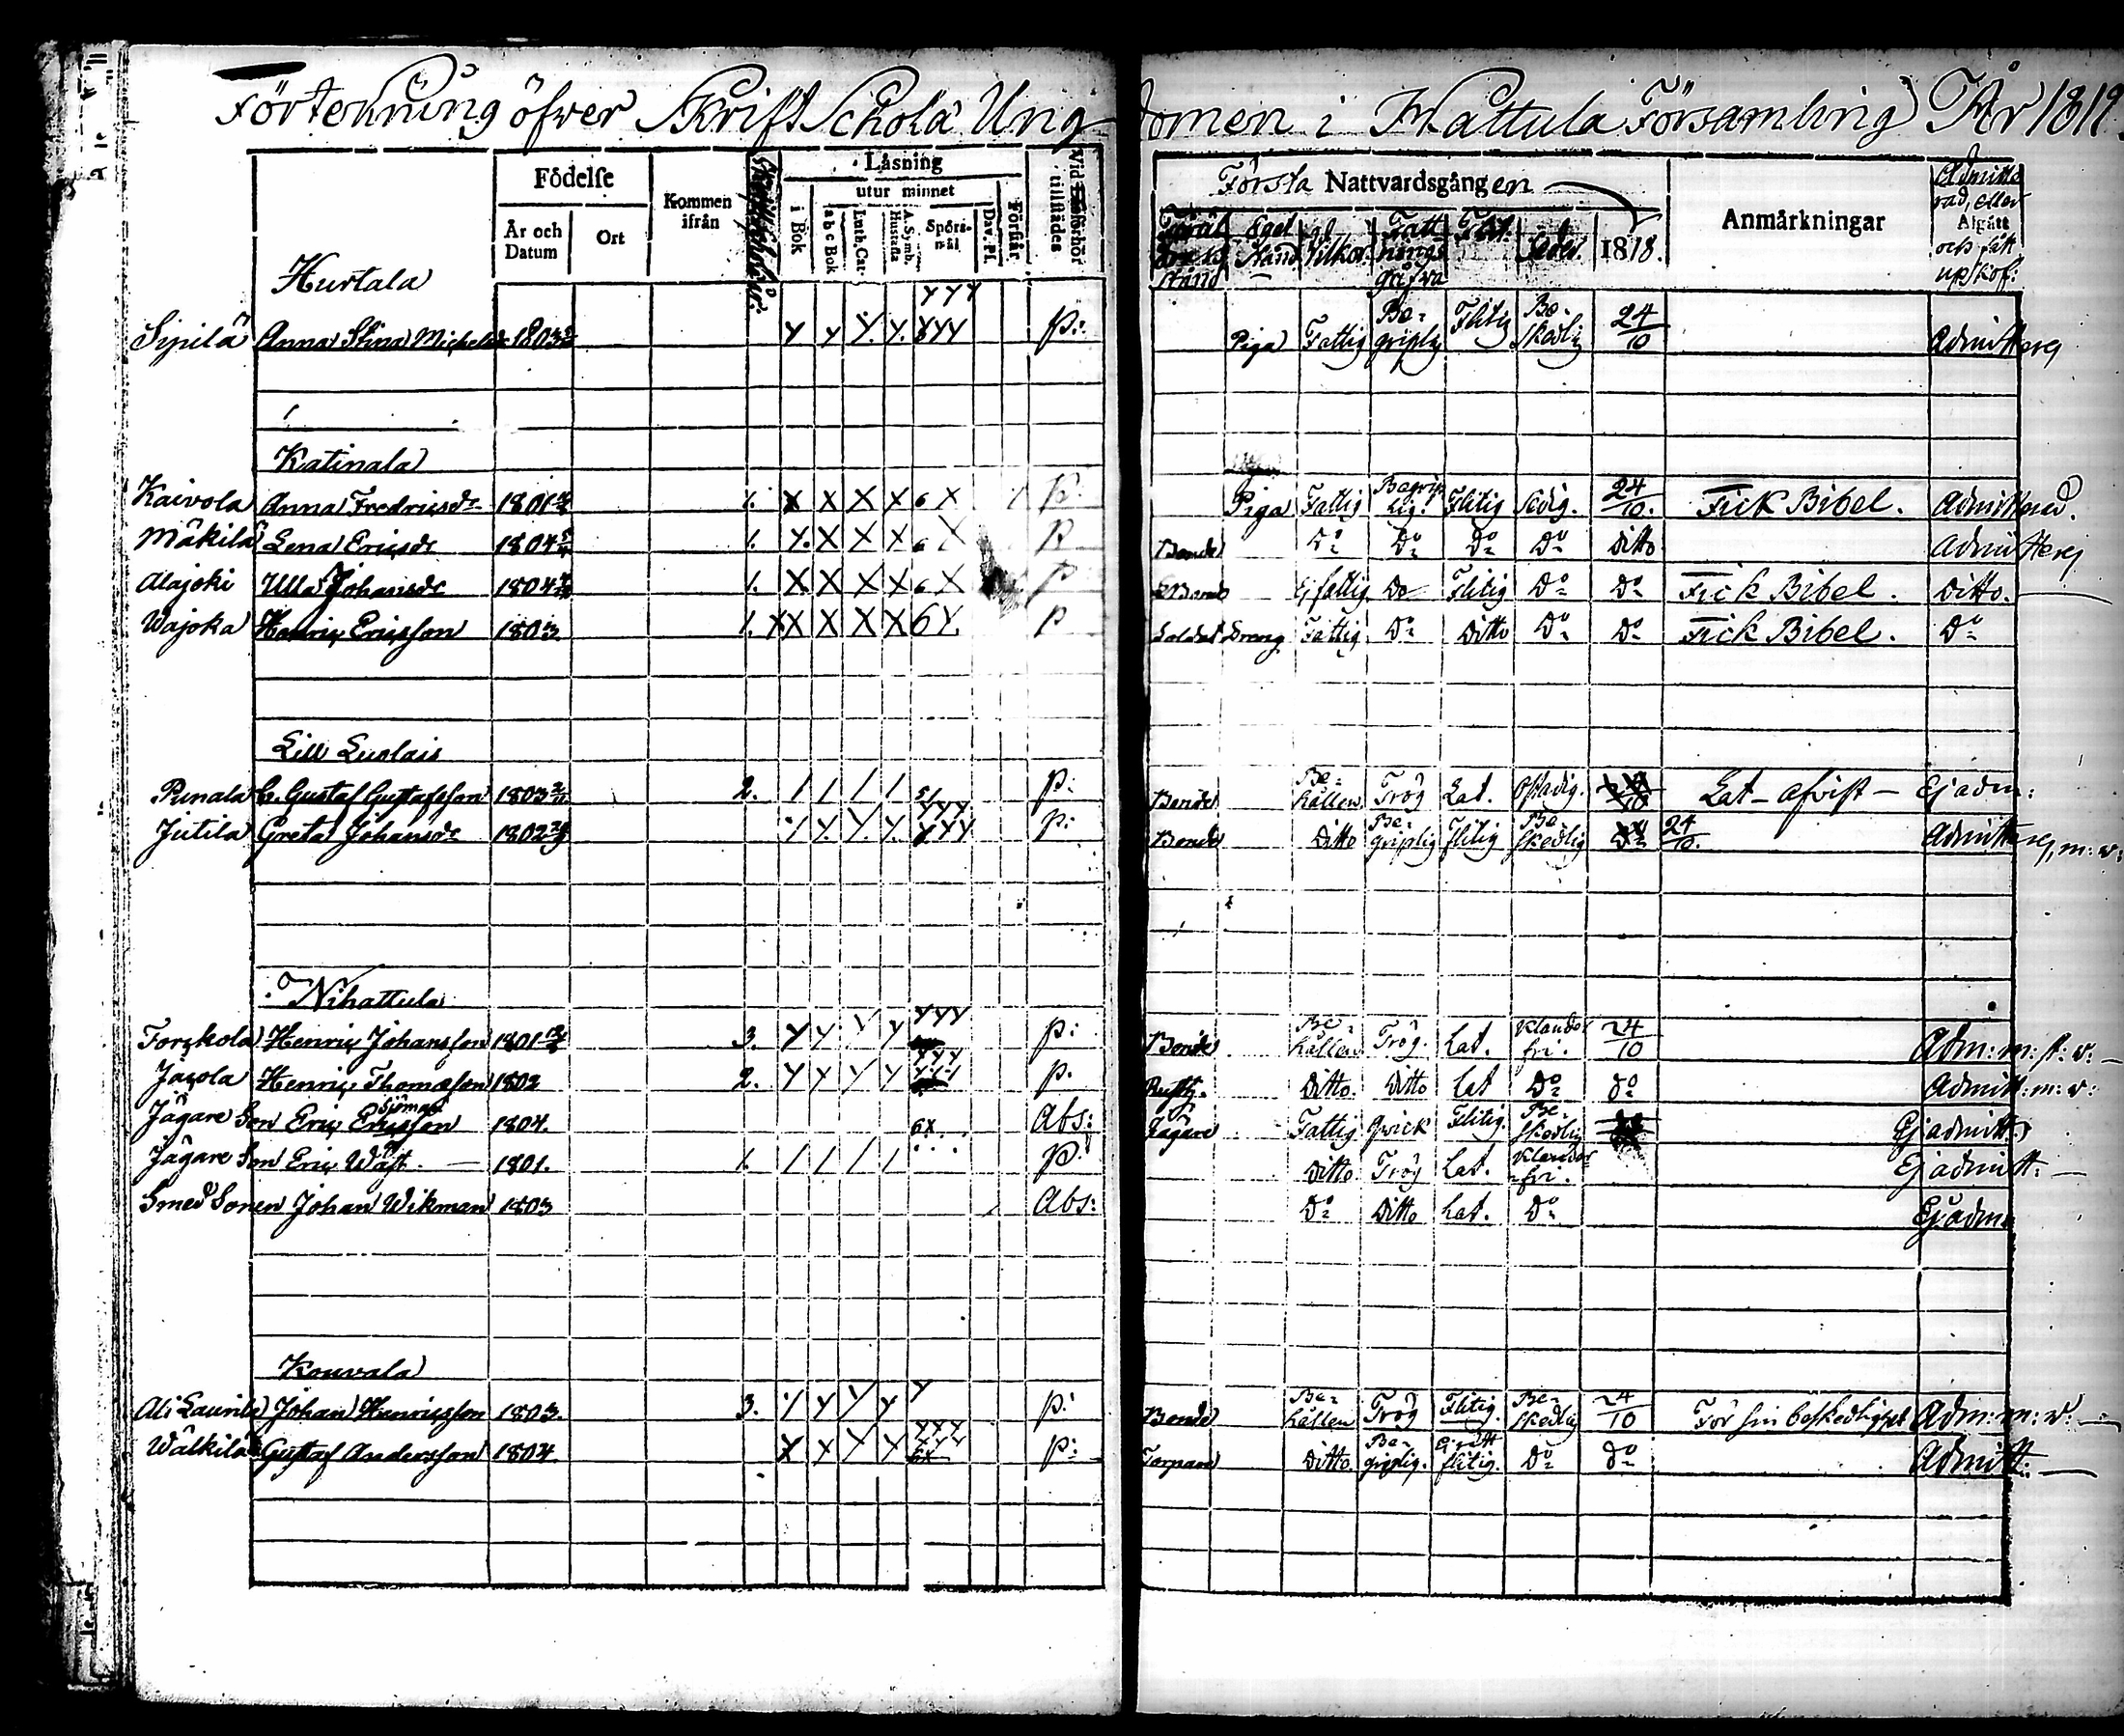 Förtekning öfver Skrift Schola Ungdomen i Hattula Församling År 1818.
Födelse Kommen ifrån Läsning Vid förhör tillstädes
År och Datum Ort i Bok abc Bok Luth. Cat. A. Symb. Hustafla utur minnet Spörsmål Dav. Ps. Förstår
Första Nattvardsgången Anmärkningar Admitterad, eller Afgått och fått upskof:
Föräldrars stånd Eget Stånd Vilkor Fattningsgåfva Flit. Seder. 1818.
Hurtala
Sipilä Anna Stina Michelsdr 1803 Y Y Y. Y. YYY YYY p: Piga Fattig Begriplig Flitig Beskedlig 24/10 Admitterej
Katinala
Kaivola Anna Fredricsdr 1801 1. X X X X 6 X P. Piga Fattig Begriplig. Flitig Sedig. 24/10. Fick Bibel. Admitterad.
Mäkilä Lena Ericsdr 1804 1. Y. X X X 6 X P Bonde Do Do Do Do Ditto Admitterej
Alajoki Ulla Johansdr 1804 1. X X X X 6 X P Ej fattig Do Flitig Do Do Fick Bibel. Ditto.
Wajoka Henric Ericsson 1803 1. X X X X X 6 Y. P Soldat Dreng Fattig Do Ditto Do Do Fick Bibel. Do
Lill Luolais
Punala C. Gustaf Gustafsson 1803 2. / / / / 5/ p: Bonde Behållen Trög Lat. Ostadig. Lat - afvist - Ej adm:
Jutila Greta Johansdr 1802 Y Y. Y Y. YYY YYY p: Bonde Ditto Begriplig Flitig Beskedlig 24/10. Admitterej, m: v:
Nihattula
Forskola Henric Johansson 1801 3. Y Y Y Y YYY p: Bonde Behållen Trög. Lat. Klanderfri. 24/10 Adm: m: s: v:
Jacola Henric Thomasson 1802 2. Y Y Y Y YYY p. Rusth. Ditto. Ditto Lat Do do Admitt: m: v:
Jägare Son Eric Ericsson Sjöman 1804. 6X Abs: Jägare Fattig Qvick Flitig. Beskedlig Ej admitt
Jägare Son Eric Waft 1801. 1. / / / / p. Ditto Trög Lat. Klanderfri. Ej admitt:
Smed Sonen Johan Wikman 1803 Abs: Do Ditto Lat. Do Ej adm
Kouvala
Ali Laurila Johan Henricsson 1803. 3. Y Y Y Y Y p: Bonde Behållen Trög Flitig. Beskedlig 24/10 För sin beskedlighet Adm: m: v:
Wälkilä Gustaf Andersson 1804 X Y Y Y YYY 6X p: Torpare Ditto Begriplig. Ej rätt flitig. Do do Admitt: